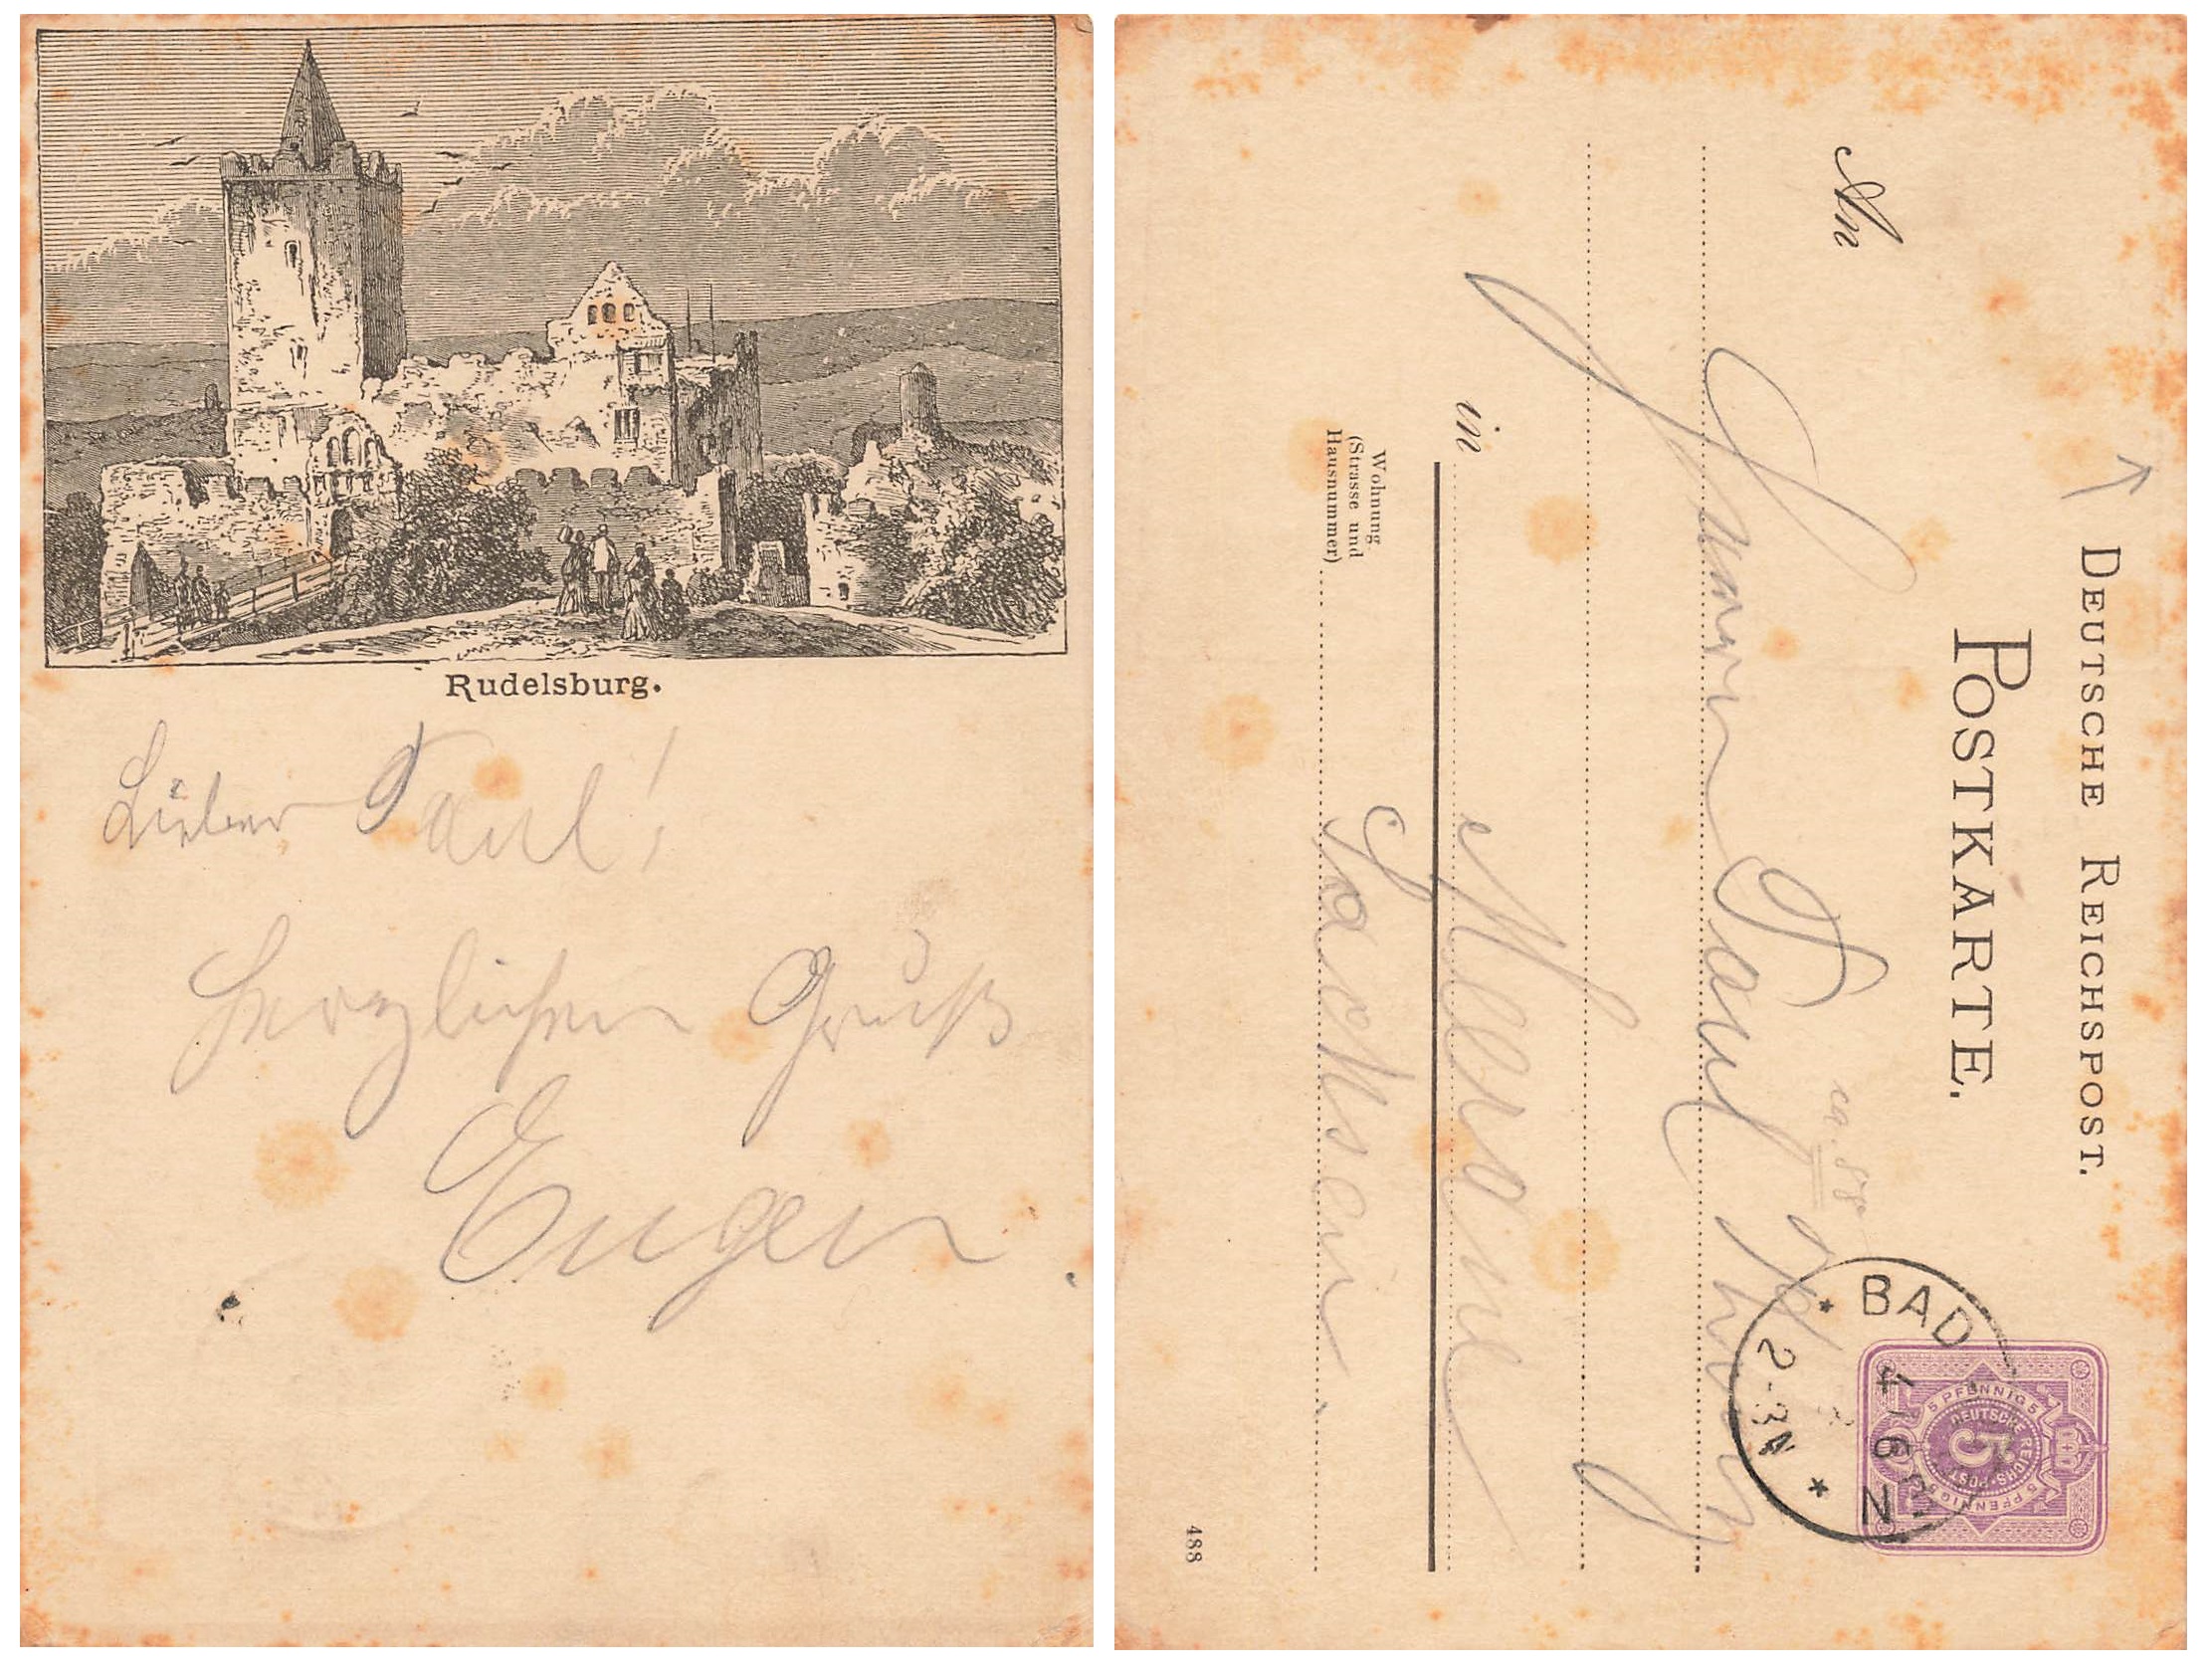 Rudelsburg.
Lieber Paul!
Herzlichen Gruß
Eugen
DEUTSCHE REICHSPOST.
POSTKARTE.
An
Herrn Paul
in Meerane
Wohnung
(Strasse und
Hausnummer)
Sachsen
488
BAD
4 6
2-3N
5 PFENNIG 5
DEUTSCHE REICHS-POST
5
5 PFENNIG 5